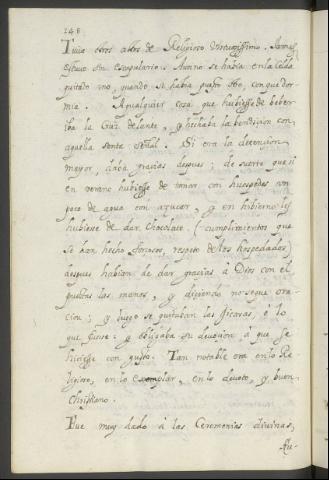 148
Tuvo otros actos de Religioso virtuosissimo. Jamas
estuvo sin escapulario. Aun no se havia en la Celda
quitado uno, quando se havia puesto otro, con que dor-
mia. A qualquier cosa que huviesse de beber
iba la Cruz delante, y hechaba la bendicion con
aquella santa señal. Si era la detencion
mayor, daba gracias despues; de suerte que si
en verano hubiesse de tomar con huespedes un
poco de agua con azucar, y en hibierno les
hubiese de dar Chocolate, (cumplimientos que
se han hecho forzosos, respeto de los hospedados)
despues habian de dar gracias à Dios con el
puestas las manos, y diciendo no se que ora-
cion; y luego se quitaban las Gicaras, ò lo
que fuesse: y obligaba su devocion à que se
hiciesse con gusto. Tan notable era en lo Re-
ligioso, en lo exemplar, en lo devoto, y buen
Christiano.
Fue muy dado à las Ceremonias divinas,